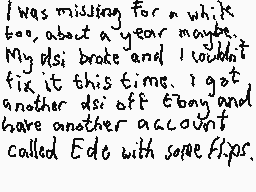 I was missing for a while
too, about a year maybe.
My dsi broke and I couldn't
fix it this time. I got
another dsi off Ebay and
have another account
called Edo with some flips.